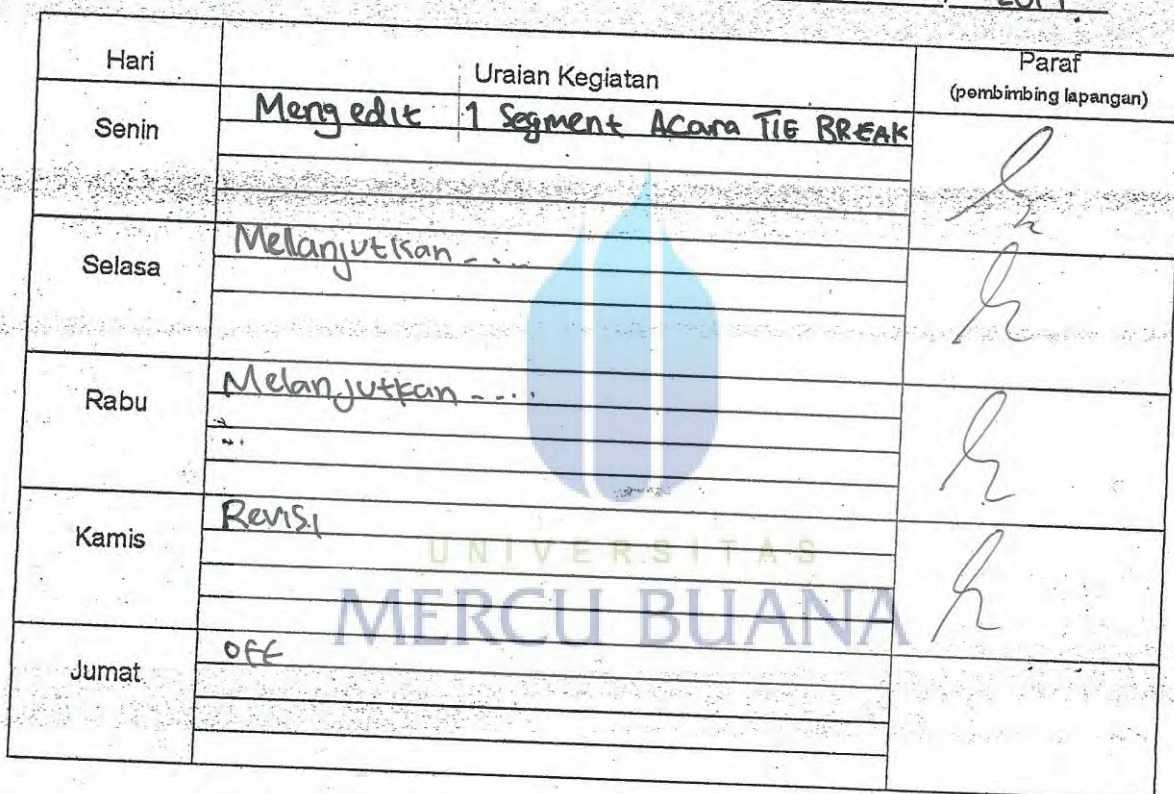 Hari
Uraian Kegiatan
Paraf
(pembimbing lapangan)
Senin
Mengedit 1 Segment Acara TIE BREAK
Selasa
Mellanjutkan - ...
Rabu
Melanjutkan - - ..
Kamis
Revisi
Jumat
off
UNIVERSITAS
MERCU BUANA